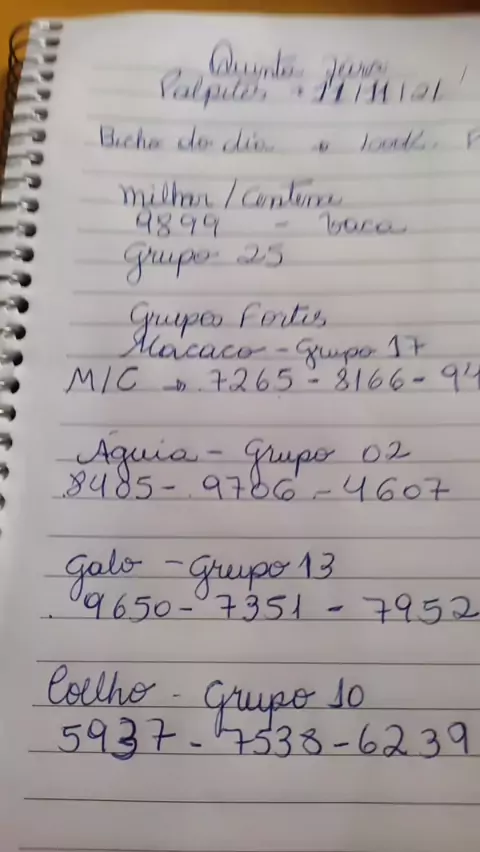 Quinta feira
Palpites → 11/11/21
Bicho do dia → 100%
Milhar/Centena
9899 - Vaca
Grupo 25
Grupos Fortes
Macaco - Grupo 17
M/C → 7265 - 8166 - 94
Águia - Grupo 02
8405 - 9706 - 4607
Galo - Grupo 13
9650 - 7351 - 7952
Coelho - Grupo 10
5937 - 7538 - 6239